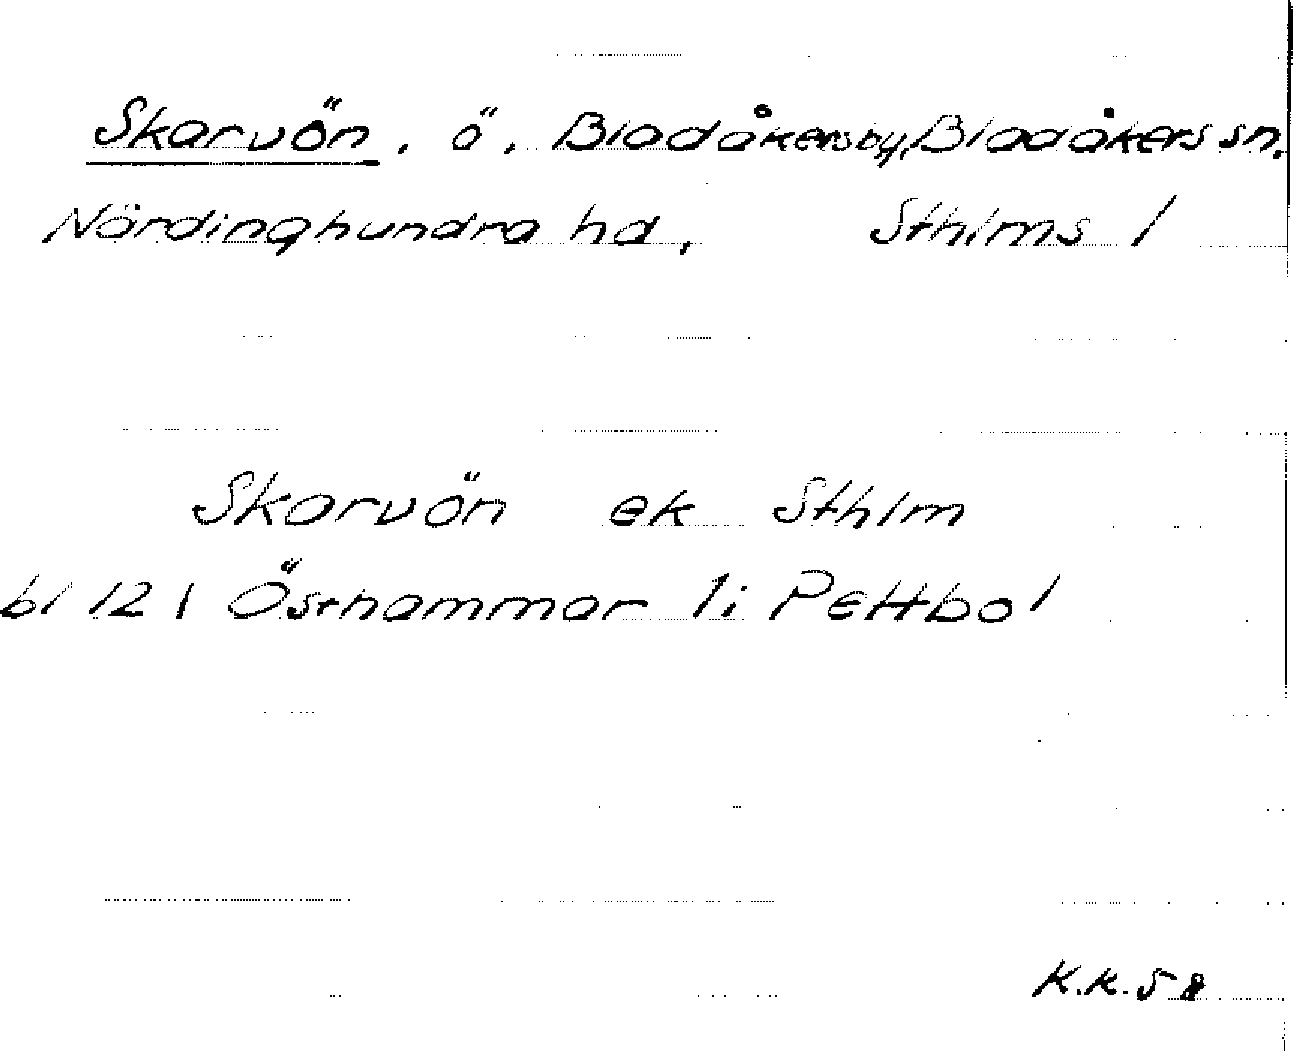 Skarvön, ö, Bladåkersby, Bladåkers sn.
Närdinghundra hd, Sthlms l
Skarvön ek Sthlm
bl 121 Östhammar 1i Pettbol
K.K. 58